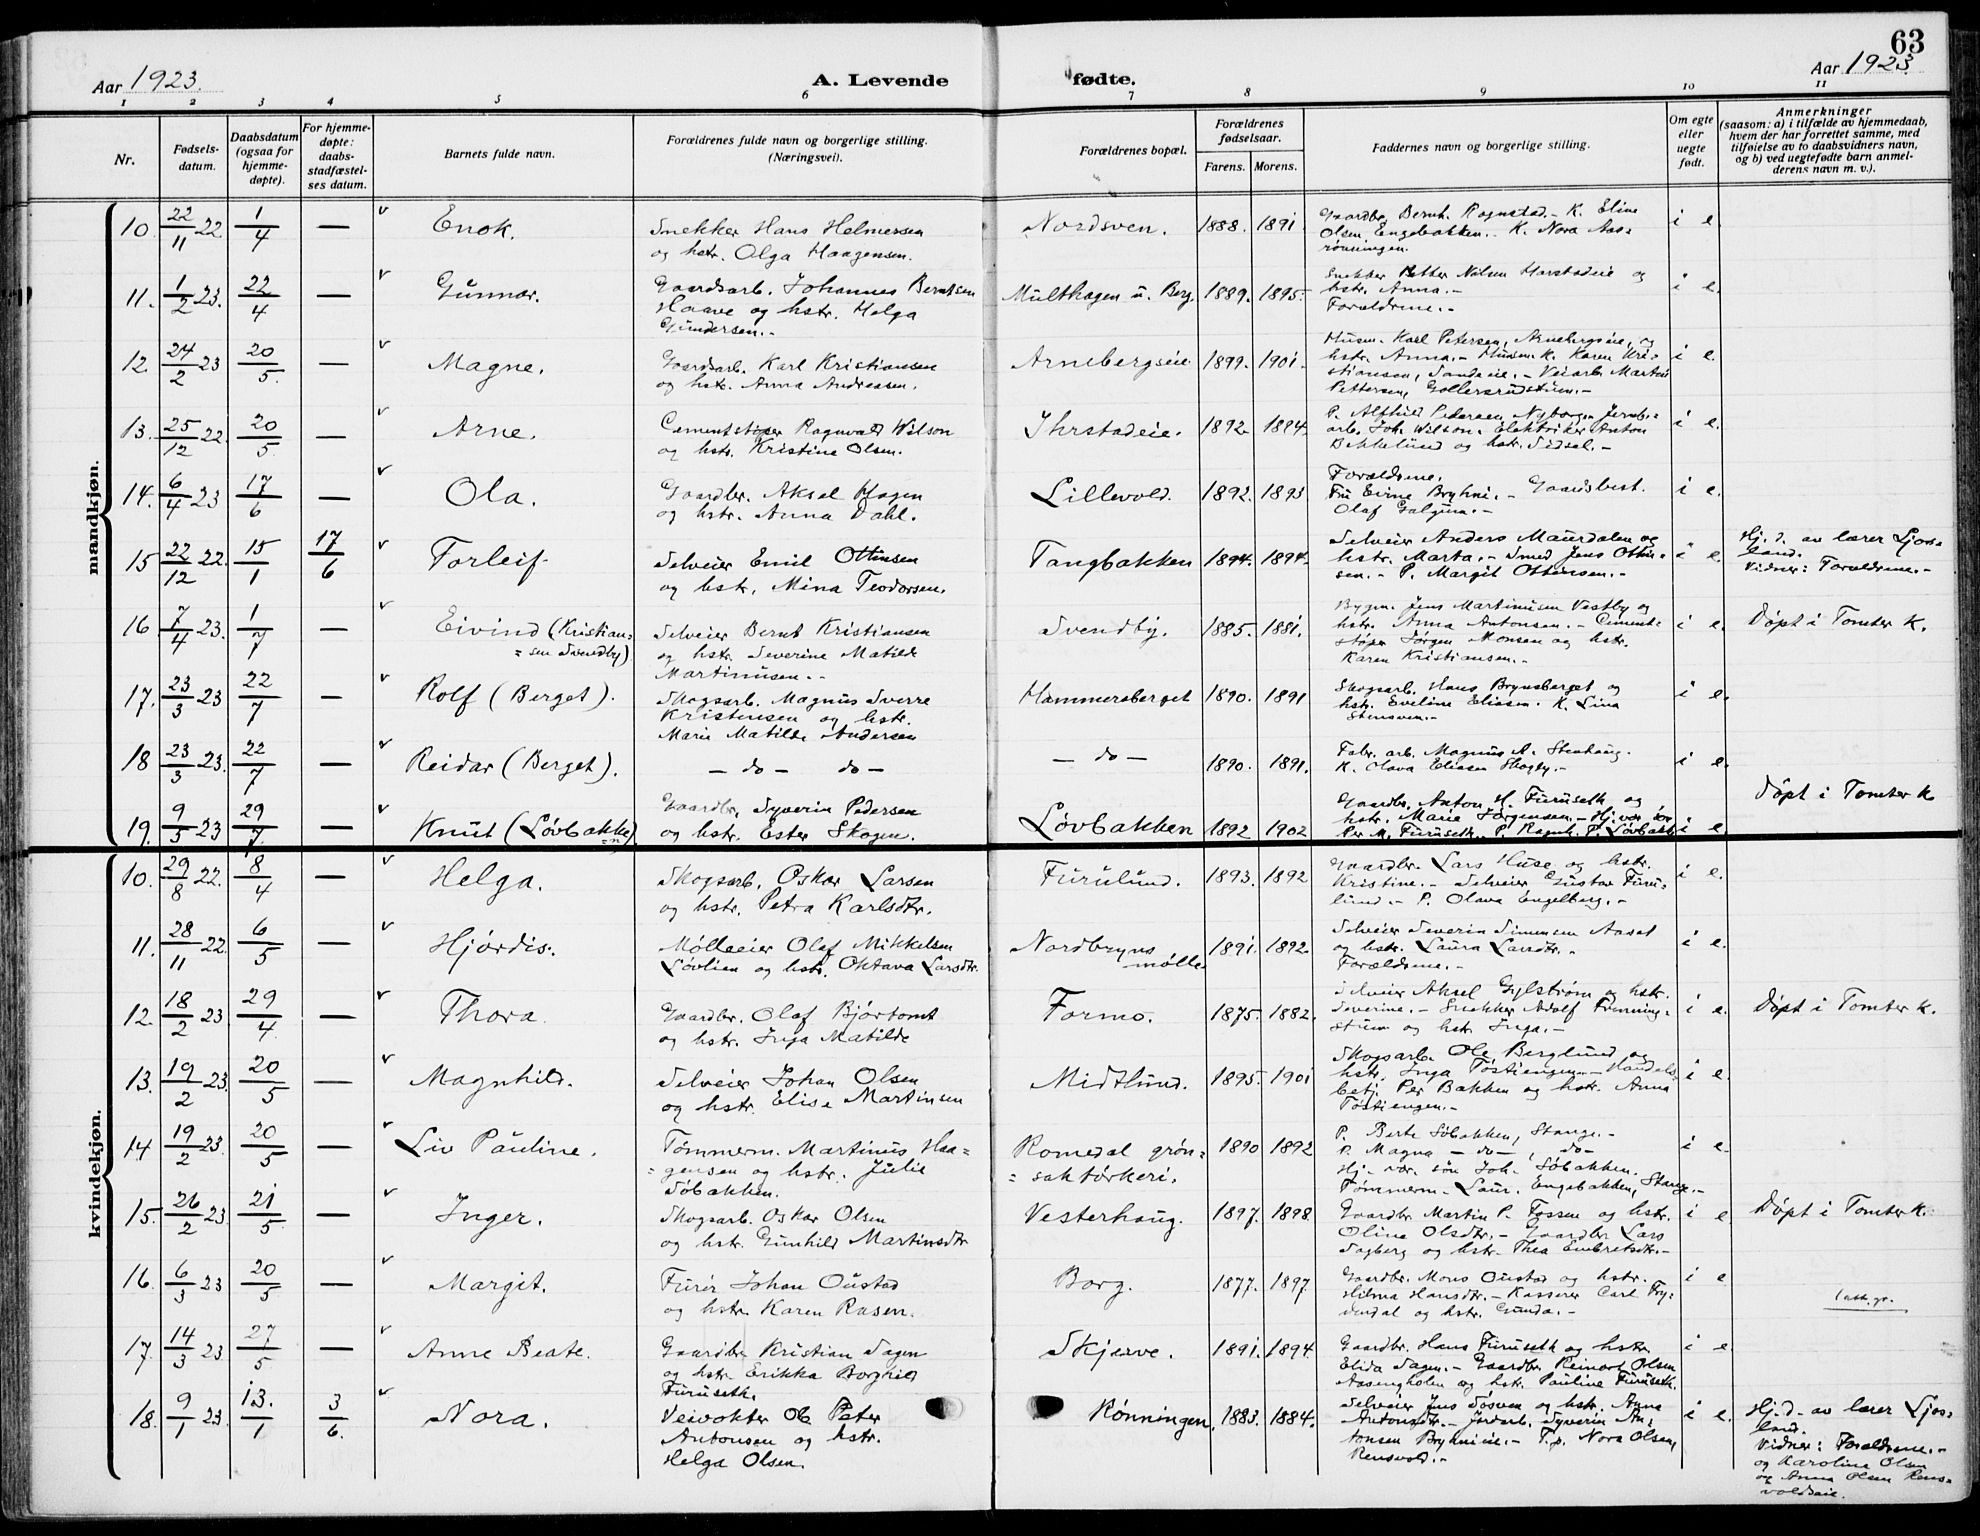 63
Aar 1923.
A. Levende fødte.
Aar 1923.
1 2 3 4 5 6 7 8 9 10 11
Nr.
Fødsels-
datum.
Daabsdatum
(ogsaa for
hjemme-
døpte).
For hjemme-
døpte:
daabs-
stadfæstel-
ses datum.
Barnets fulde navn.
Forældrenes fulde navn og borgerlige stilling.
(Næringsvei).
Forældrenes bopæl.
Forældrenes
fødselsaar.
Farens. Morens.
Faddernes navn og borgerlige stilling.
Om egte
eller
uegte
født.
Anmerkninger
(saasom: a) i tilfælde av hjemmedaab,
hvem der har forrettet samme, med
tilføielse av to daabsvidners navn,
og b) ved uegtefødte barn anmel-
derens navn m. v.).
mandkjøn.
10. 22/11 22. 1/4 — Enok.
Snekker Hans Helmersen
og hstr. Olga Haagensen.
Nordsven. 1888. 1891.
Gaardbr. Bernh. Rognstad. - K. Eline
Olsen Engebakken. - K. Nora Aas-
rønningen.
i e.
11. 1/2 23. 22/4 — Gunnar.
Gaardsarb. Johannes Berntsen
Haave og hstr. Helga
Gundersen. -
Multhagen u. Berg. 1889. 1895.
Snekker Petter Nilsen Harstadeie og
hstr. Anna. -
Forældrene. -
i e.
12. 24/2 23 20/5. — Magne.
Gaardsarb. Karl Kristiansen
og hstr. Anna Andreasen.
Arnebergseie 1899. 1901.
Husm. Karl Petersen, Arnebergseie, og
hstr. Anna. - Husm. K. Karen Kri-
stiansen, Sandeie. - Veiarb. Martin
Pettersen, Gollersrudstuen. -
i e.
13. 25/12 22. 20/5 — Arne.
Cementstøper Ragnvald Wilson
og hstr. Kristine Olsen.
Ihrstadeie. 1892 1894.
P. Alfhild Pedersen, Nyborg. - Jernb.-
arb. Joh. Wilson. Elektriker Anton
Bekkelund og hstr. Sidsel. -
i e.
14. 6/4 23 17/6 — Ola.
Gaardbr. Aksel Hagen
og hstr. Anna Dahl.
Lillevold. 1892. 1893
Forældrene.
Fru Eirne Bryhni. - Gaardsbest.
Olaf
i e.
15 22/12 22. 15/1 17/6 Torleif.
Selveier Emil Ottinsen
og hstr. Mina Teodorsen.
Tangbakken 1894. 1894.
Selveier Anders Maurdalen og
hstr. Marta. - Smed Jens Ottin-
sen. - P. Margit Ottinsen. -
i e.
Hj. d. av lærer Ljos-
land.
Vidner: Forældrene. -
16 7/4 23. 1/7 — Eivind (Kristian-
= sen Svendby)
Selveier Bernt Kristiansen
og hstr. Severine Matilde
Martinusen. -
Svendby. 1885. 1881.
Bygm. Jens Martinusen Vestby og
hstr. Anna Antonsen. - Cement-
støper Jørgen Monsen og hstr.
Karen Kristiansen. -
i e.
Døpt i Tomter K.
17. 23/3 23 22/7 — Rolf (Berget).
Skogsarb. Magnus Sverre
Kristensen og hstr.
Marie Matilde Andersen
Hammersberget 1890. 1891
Skogsarb. Hans Brynsberget og
hstr. Eveline Eliasen. K. Lina
Stensven. -
i e.
18 23/3 23. 22/7 — Reidar (Berget).
— do — do —
— do — 1890. 1891.
Fabr. arb. Magnus A. Stenhaug.
K. Olava Eliasen Skogly. -
i e.
19. 9/5 23 29/7. — Knut (Løvbakken)
Gaardbr. Syverin Pedersen
og hstr. Ester Skogen.
Løvbakken 1892 1902
Gaardbr. Anton H. Furuseth og
hstr. Marie Jørgensen. - Hj. vær. søn
Per M. Furuseth. P. Ragnh. P. Løvbakk.
i e.
Døpt i Tomter K
kvindekjøn.
10. 29/8 22. 8/4 — Helga.
Skogsarb. Oskar Larsen
og hstr. Petra Karlsdtr.
Furulund. 1893. 1892
Gaardbr. Lars Huse og hstr.
Kristine. - Selveier Gustav Furu-
lund. - P. Olava Engelberg. -
i e.
11. 28/11 22. 6/5 — Hjørdis.
Mølleeier Olaf Mikkelsen
Løvlien og hstr. Oktava Larsdtr.
Nordbryns
mølle 1891. 1892
Selveier Severin Simensen Aaset
og hstr. Laura Larsdtr. -
Forældrene. -
i e.
12. 18/2 23 29/4 — Thora.
Gaardbr. Olaf Bjørtomt
og hstr. Inga Matilde
Formo. 1875. 1882.
Selveier Aksel Gylstrøm og hstr.
Severine. - Snekker Adolf
stuen og hstr. Inga. -
i e.
Døpt i Tomter K.
13. 19/2 23. 20/5 — Magnhild.
Selveier Johan Olsen
og hstr. Elise Martinsen
Midtlund. 1895. 1901
Skogsarb. Ole Berglund og
hstr. Inga Tøstiengen. - Handels-
betj. Per Bakken og hstr. Anna
Tøstiengen. -
i e.
14 19/2 23. 20/5 — Liv Pauline.
Tømmerm. Martinus Haa-
= gensen og hstr. Julie
Søbakken.
Romedal grøn-
= saktørkeri. 1890 1892
P. Berte Søbakken, Stange. -
P. Magna — do — , do —
Hj. vær. søn Joh. Søbakken.
Tømmerm. Laur. Engebakken, Stange. -
i e.
15. 26/2 23. 21/5. — Inger.
Skogsarb. Oskar Olsen
og hstr. Gunhild Martinsdtr
Vesterhaug. 1897. 1898.
Gaardbr. Martin P. Fossen og hstr.
Oline Olsdtr. - Gaardbr. Lars
Sagberg og hstr. Thea Embretsdtr. -
i e
Døpt i Tomter K.
16. 6/3 23 20/5 — Margit.
Furér Johan Oustad
og hstr. Karen Rasen.
Borg. 1877. 1897.
Gaardbr. Mons Oustad og hstr.
Hilma Hansdtr. - Kasserer Carl Fry-
dendal og hstr. Gunda. -
i e
1 att. gr.
17. 14/3 23 27/5 — Anne Beate.
Gaardbr. Kristian Sagen
og hstr. Erikka Borghild
Furuseth.
Skjerve. 1891. 1894.
Gaardbr. Hans Furuseth og hstr.
Elida Sagen. - Gaardbr. Reinert Olsen
Aasengholen og hstr. Pauline Furuseth.
i e
18. 9/1 23. 13./1 3/6. Nora.
Veivokter Ole Peter
Antonsen og hstr.
Helga Olsen.
Rønningen. 1883. 1884.
Selveier Jens Søsven og hstr. Anna
Antonsdtr. - Jordarb. Syverin An-
tonsen Bryhnieie. - T.p. Nora Olsen,
Rensvold. -
i e.
Hj. d. av lærer Ljos-
land.
Vidner: Forældrene. -
og Karoline Olsen
og Anna Olsen Rens-
voldseie.